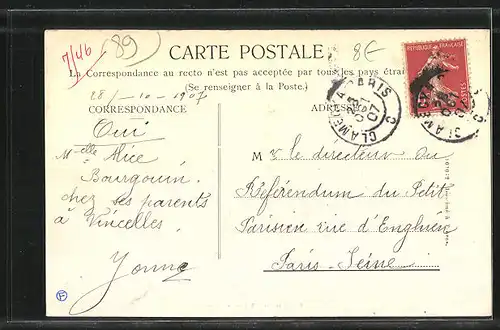 7/46
(89)
8E
CARTE POSTALE
La Correspondance au recto n'est pas acceptée par tous les pays étra
(Se renseigner à la Poste.)
28/-10-1907
CORRESPONDANCE
ADRESSE
REPUBLIQUE FRANÇAISE
POSTES
CLAMECY A PARIS
07
Oui
Melle Alice
Bourgouin
chez ses parents
à Vincelles
Yonne
M r le directeur du
Référendum du Petit
Parisien rue d'Enghien
Paris-Seine